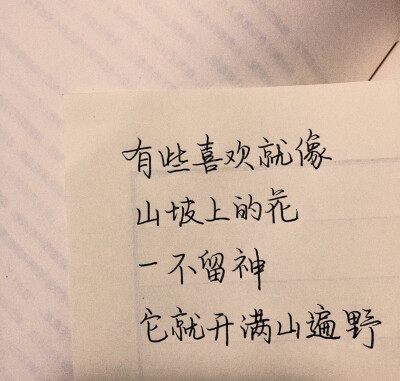 有些喜欢就像
山坡上的花
一不留神
它就开满山遍野